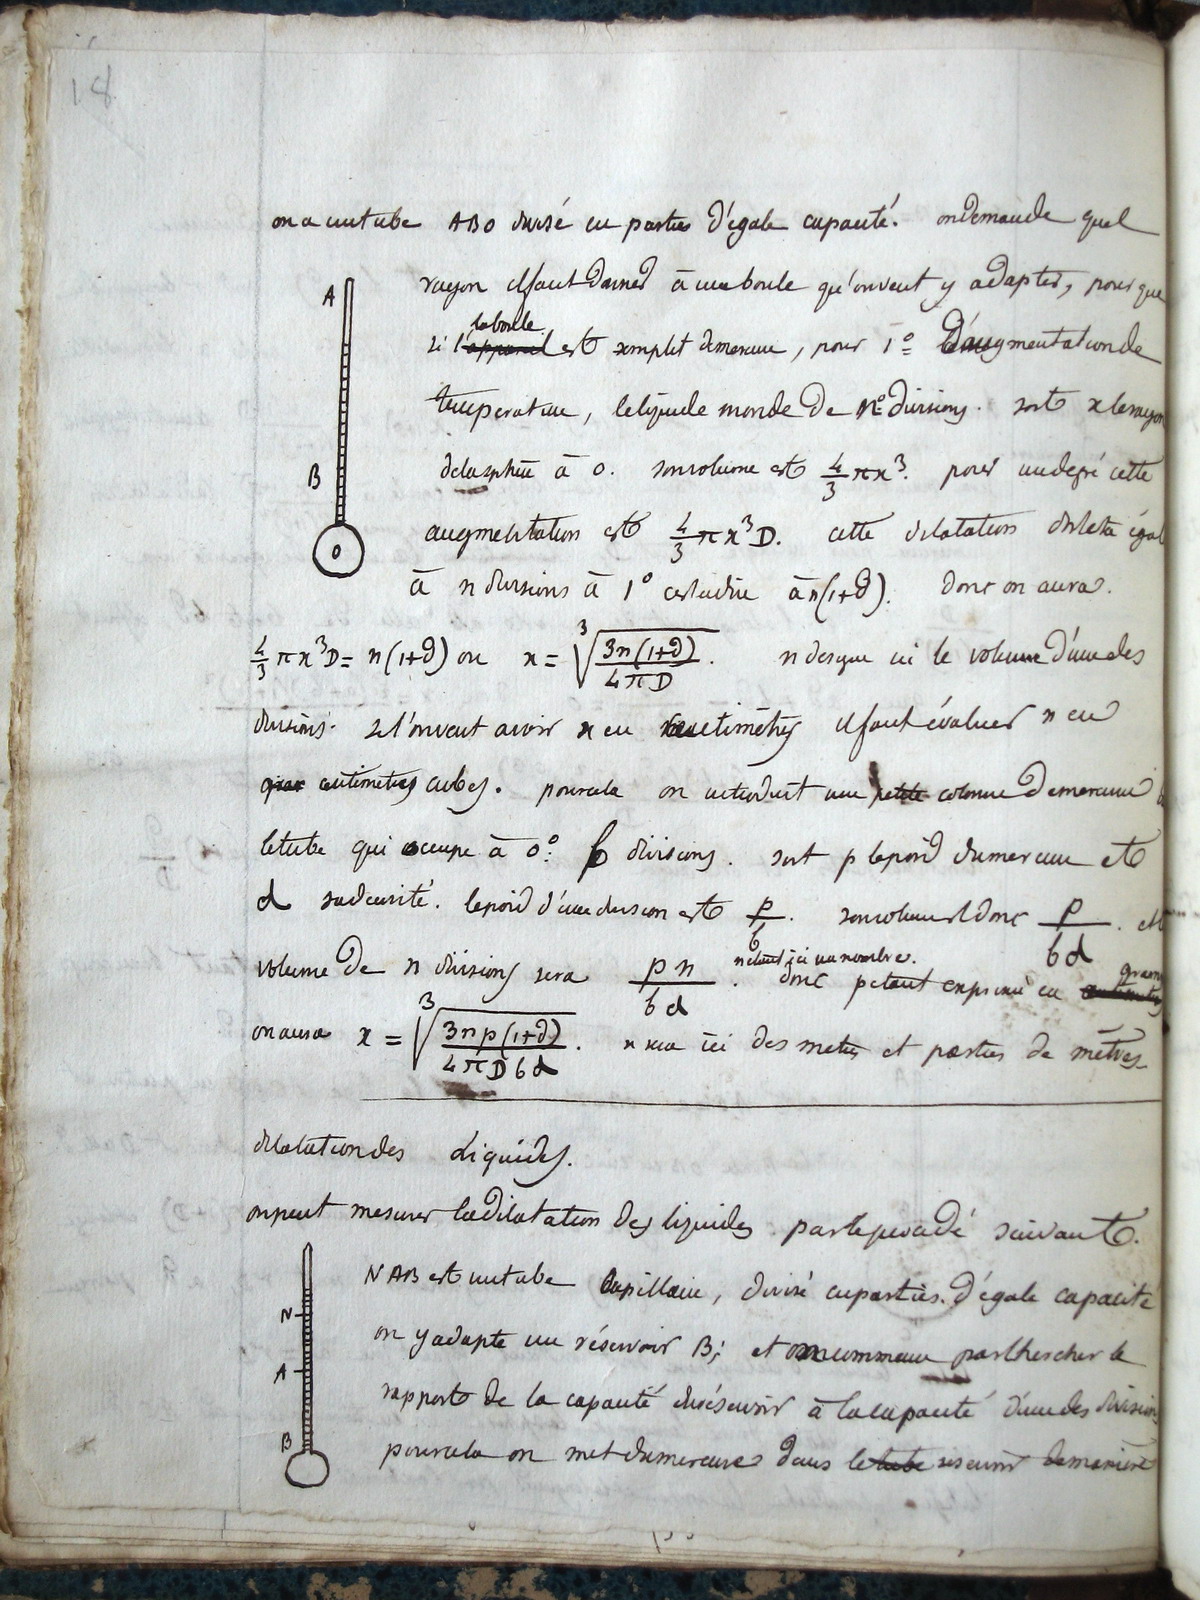 18
on a un tube ABO divisé en parties d'égale capacité. on demande quel
A
rayon il faut donner à une boule qu'on veut y adapter, pour que
la boule
si l'appareil est rempli de mercure, pour 1° d'augmentation de
température, le liquide monde de n divisions. soit x le rayon
B
de la sphère à 0. son volume est 4/3 πx³. pour un degré cette
augmentation est 4/3 πx³D. cette dilatation doit être égal
O
à n divisions à 1° c'est à dire à n(1+d). donc on aura.
4/3 πx³D = n(1+d) ou x = ∛(3n(1+d)/4πD). n désigne ici le volume d'une des
divisions. si l'on veut avoir x en centimètres il faut évaluer n en
centimetres cubes. pour cela on introduit une petite colonne de mercure
le tube qui occupe à 0° b divisions. soit p le poid du mercure et
d sa densité. le poid d'une division est p/b. son volume est donc p/bd. et le
n étant ici un nombre.
volume de n divisions sera pn/bd. donc p étant exprimé en
grammes
on aura x = ∛(3np(1+d)/4πDbd). x sera ici des metres et parties de mètres.
dilatation des liquides.
on peut mesurer la dilatation des liquides par le procédé suivant.
NAB est un tube capillaire, divisé en parties d'égale capacité
N
on y adapte un réservoir B; et on commence par chercher le
A
rapport de la capacité du réservoir à la capacité d'une des divisions
B
pour cela on met du mercure dans le tube reservoir de manière